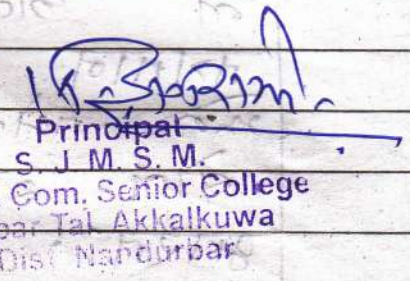 Principal
S. J. M. S. M.
Com. Senior College
Tal. Akkalkuwa
Dist Nandurbar